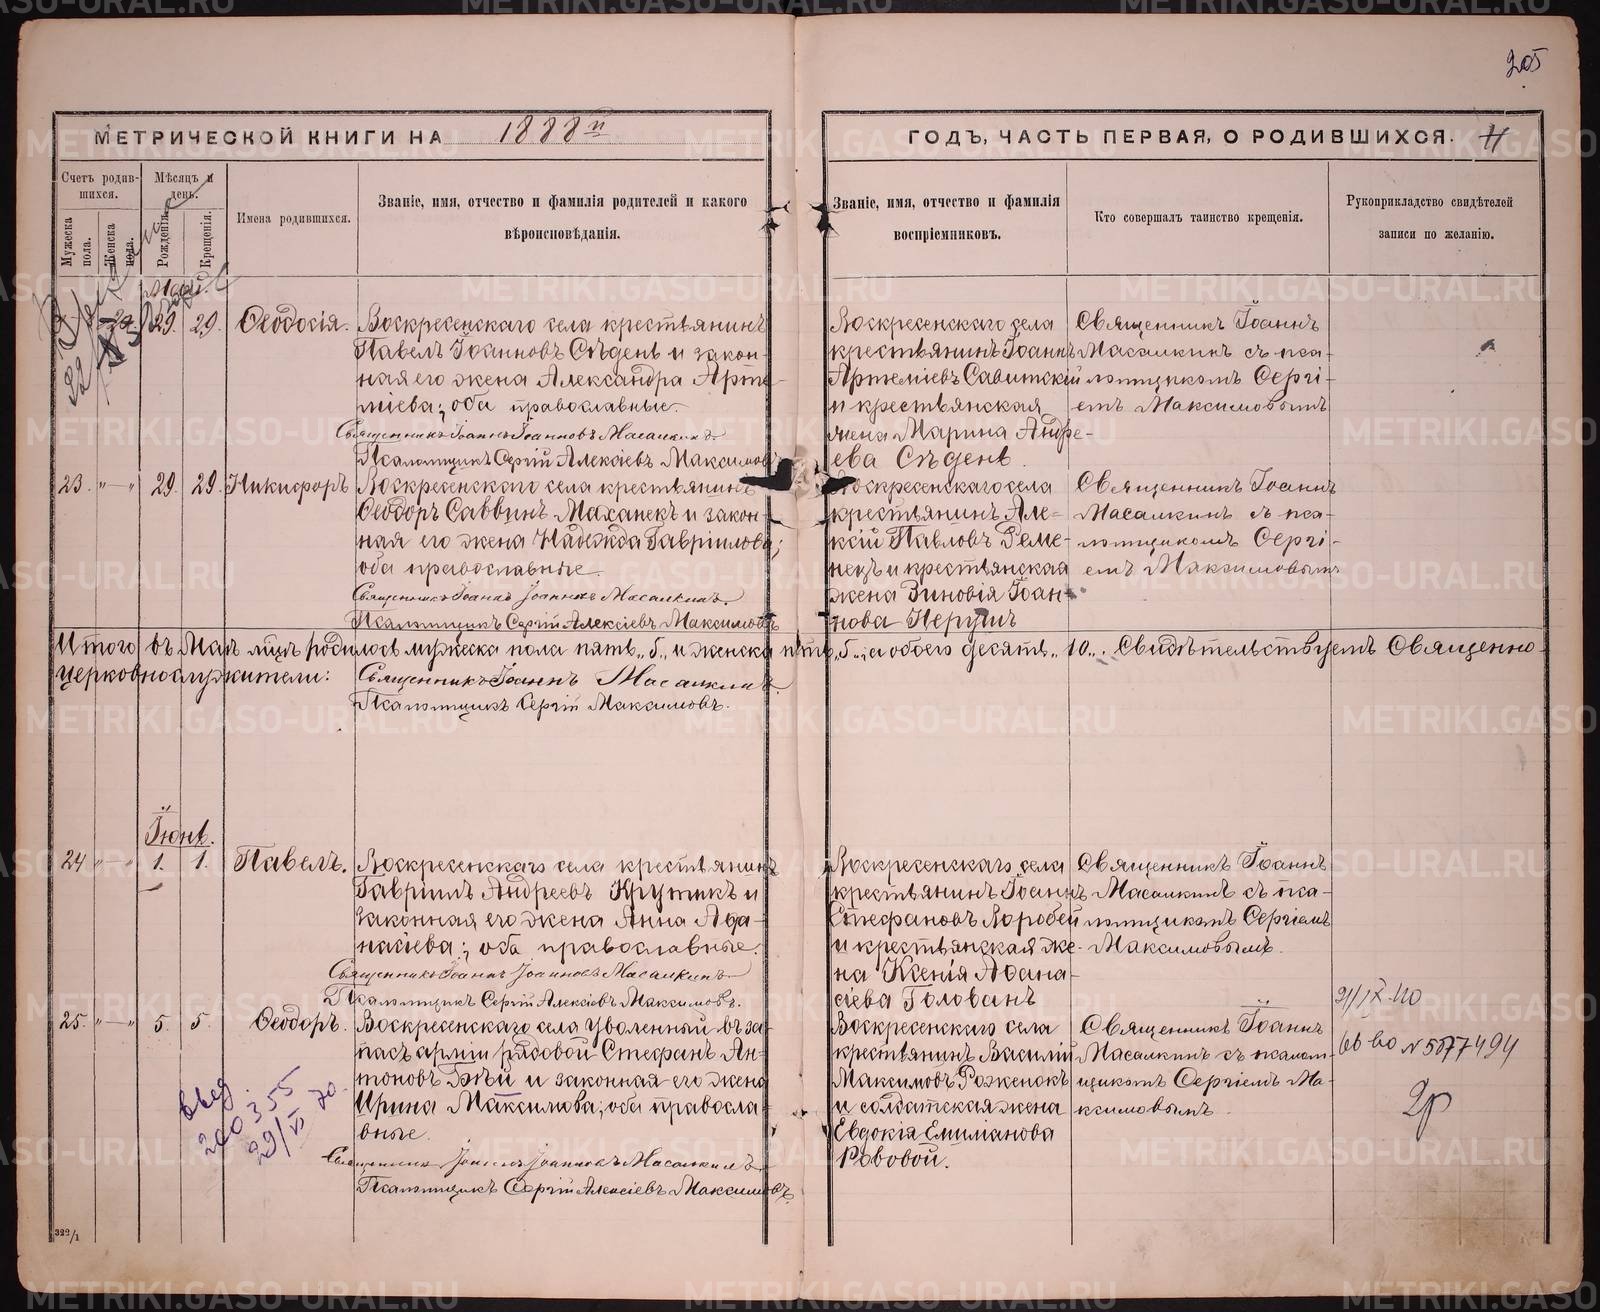 205
МЕТРИЧЕСКОЙ КНИГИ НА 1888й
ГОДЪ, ЧАСТЬ ПЕРВАЯ, О РОДИВШИХСЯ.
Счетъ родив-
шихся.
Мужеска
пола.
Женска
пола.
Мѣсяцъ и
день.
Рожденія.
Крещенія.
Имена родившихся.
Званіе, имя, отчество и фамилія родителей и какого
вѣроисповѣданія.
Званіе, имя, отчество и фамилія
воспріемниковъ.
Кто совершалъ таинство крещенія.
Рукоприкладство свидѣтелей
записи по желанію.
Май.
29. 29. Ѳеодосія.
Воскресенскаго села крестьянинъ
Павелъ Іоанновъ Сѣдень и закон-
ная его жена Александра Арте-
міева; оба православные.
Священникъ Іоаннъ Іоанновъ Масалкинъ
Псаломщикъ Сергій Алексіевъ Максимовъ
Воскресенскаго села
крестьянинъ Іоаннъ
Артеміевъ Савитскій
и крестьянская
жена Марина Андре-
ева Сѣдень.
Священникъ Іоаннъ
Масалкинъ съ пса-
ломщикомъ Сергі-
емъ Максимовымъ
23. "—" 29. 29. Никифоръ
Воскресенскаго села крестьянинъ
Ѳеодоръ Саввинъ Маханекъ и закон-
ная его жена Надежда Гавріилова;
оба православные.
Священникъ Іоаннъ Іоанновъ Масалкинъ.
Псаломщикъ Сергій Алексіевъ Максимовъ
Воскресенскаго села
крестьянинъ Але-
ксій Павловъ Реме-
нецъ и крестьянская
жена Зиновія Іоан-
нова Перушъ
Священникъ Іоаннъ
Масалкинъ съ пса-
ломщикомъ Сергі-
емъ Максимовымъ
Итого въ Маѣ м-цѣ родилось мужеска пола пять „5„ и женска пять „5„, а обоего десять „10„. Свидѣтельствуемъ Священно-
церковнослужители: Священникъ Іоаннъ Масалкинъ.
Псаломщикъ Сергій Максимовъ.
Іюнь.
24 "—" 1. 1. Павелъ.
Воскресенскаго села крестьянинъ
Гавріилъ Андреевъ Крутикъ и
законная его жена Анна Аѳа-
насіева; оба православные.
Священникъ Іоаннъ Іоанновъ Масалкинъ
Псаломщикъ Сергій Алексіевъ Максимовъ.
Воскресенскаго села
крестьянинъ Іоаннъ
Стефановъ Воробей
и крестьянская же-
на Ксенія Аѳана-
сіева Голованъ
Священникъ Іоаннъ
Масалкинъ съ пса-
ломщикомъ Сергіемъ
Максимовымъ.
25. "—" 5. 5. Ѳеодоръ.
Воскресенскаго села уволенный въ за-
пасъ арміи рядовой Стефанъ Ан-
тоновъ Бѣй и законная его жена
Ирина Максимова; оба правосла-
вные.
Священникъ Іоаннъ Іоанновъ Масалкинъ
Псаломщикъ Сергій Алексіевъ Максимовъ.
Воскресенскаго села
крестьянинъ Василій
Максимовъ Роженокъ
и солдатская жена
Евдокія Емиліанова
Рововой.
Священникъ Іоаннъ
Масалкинъ съ псалом-
щикомъ Сергіемъ Ма-
ксимовымъ
N 5877494
2р
200355
322/1
METRIKI.GASO-URAL.RU